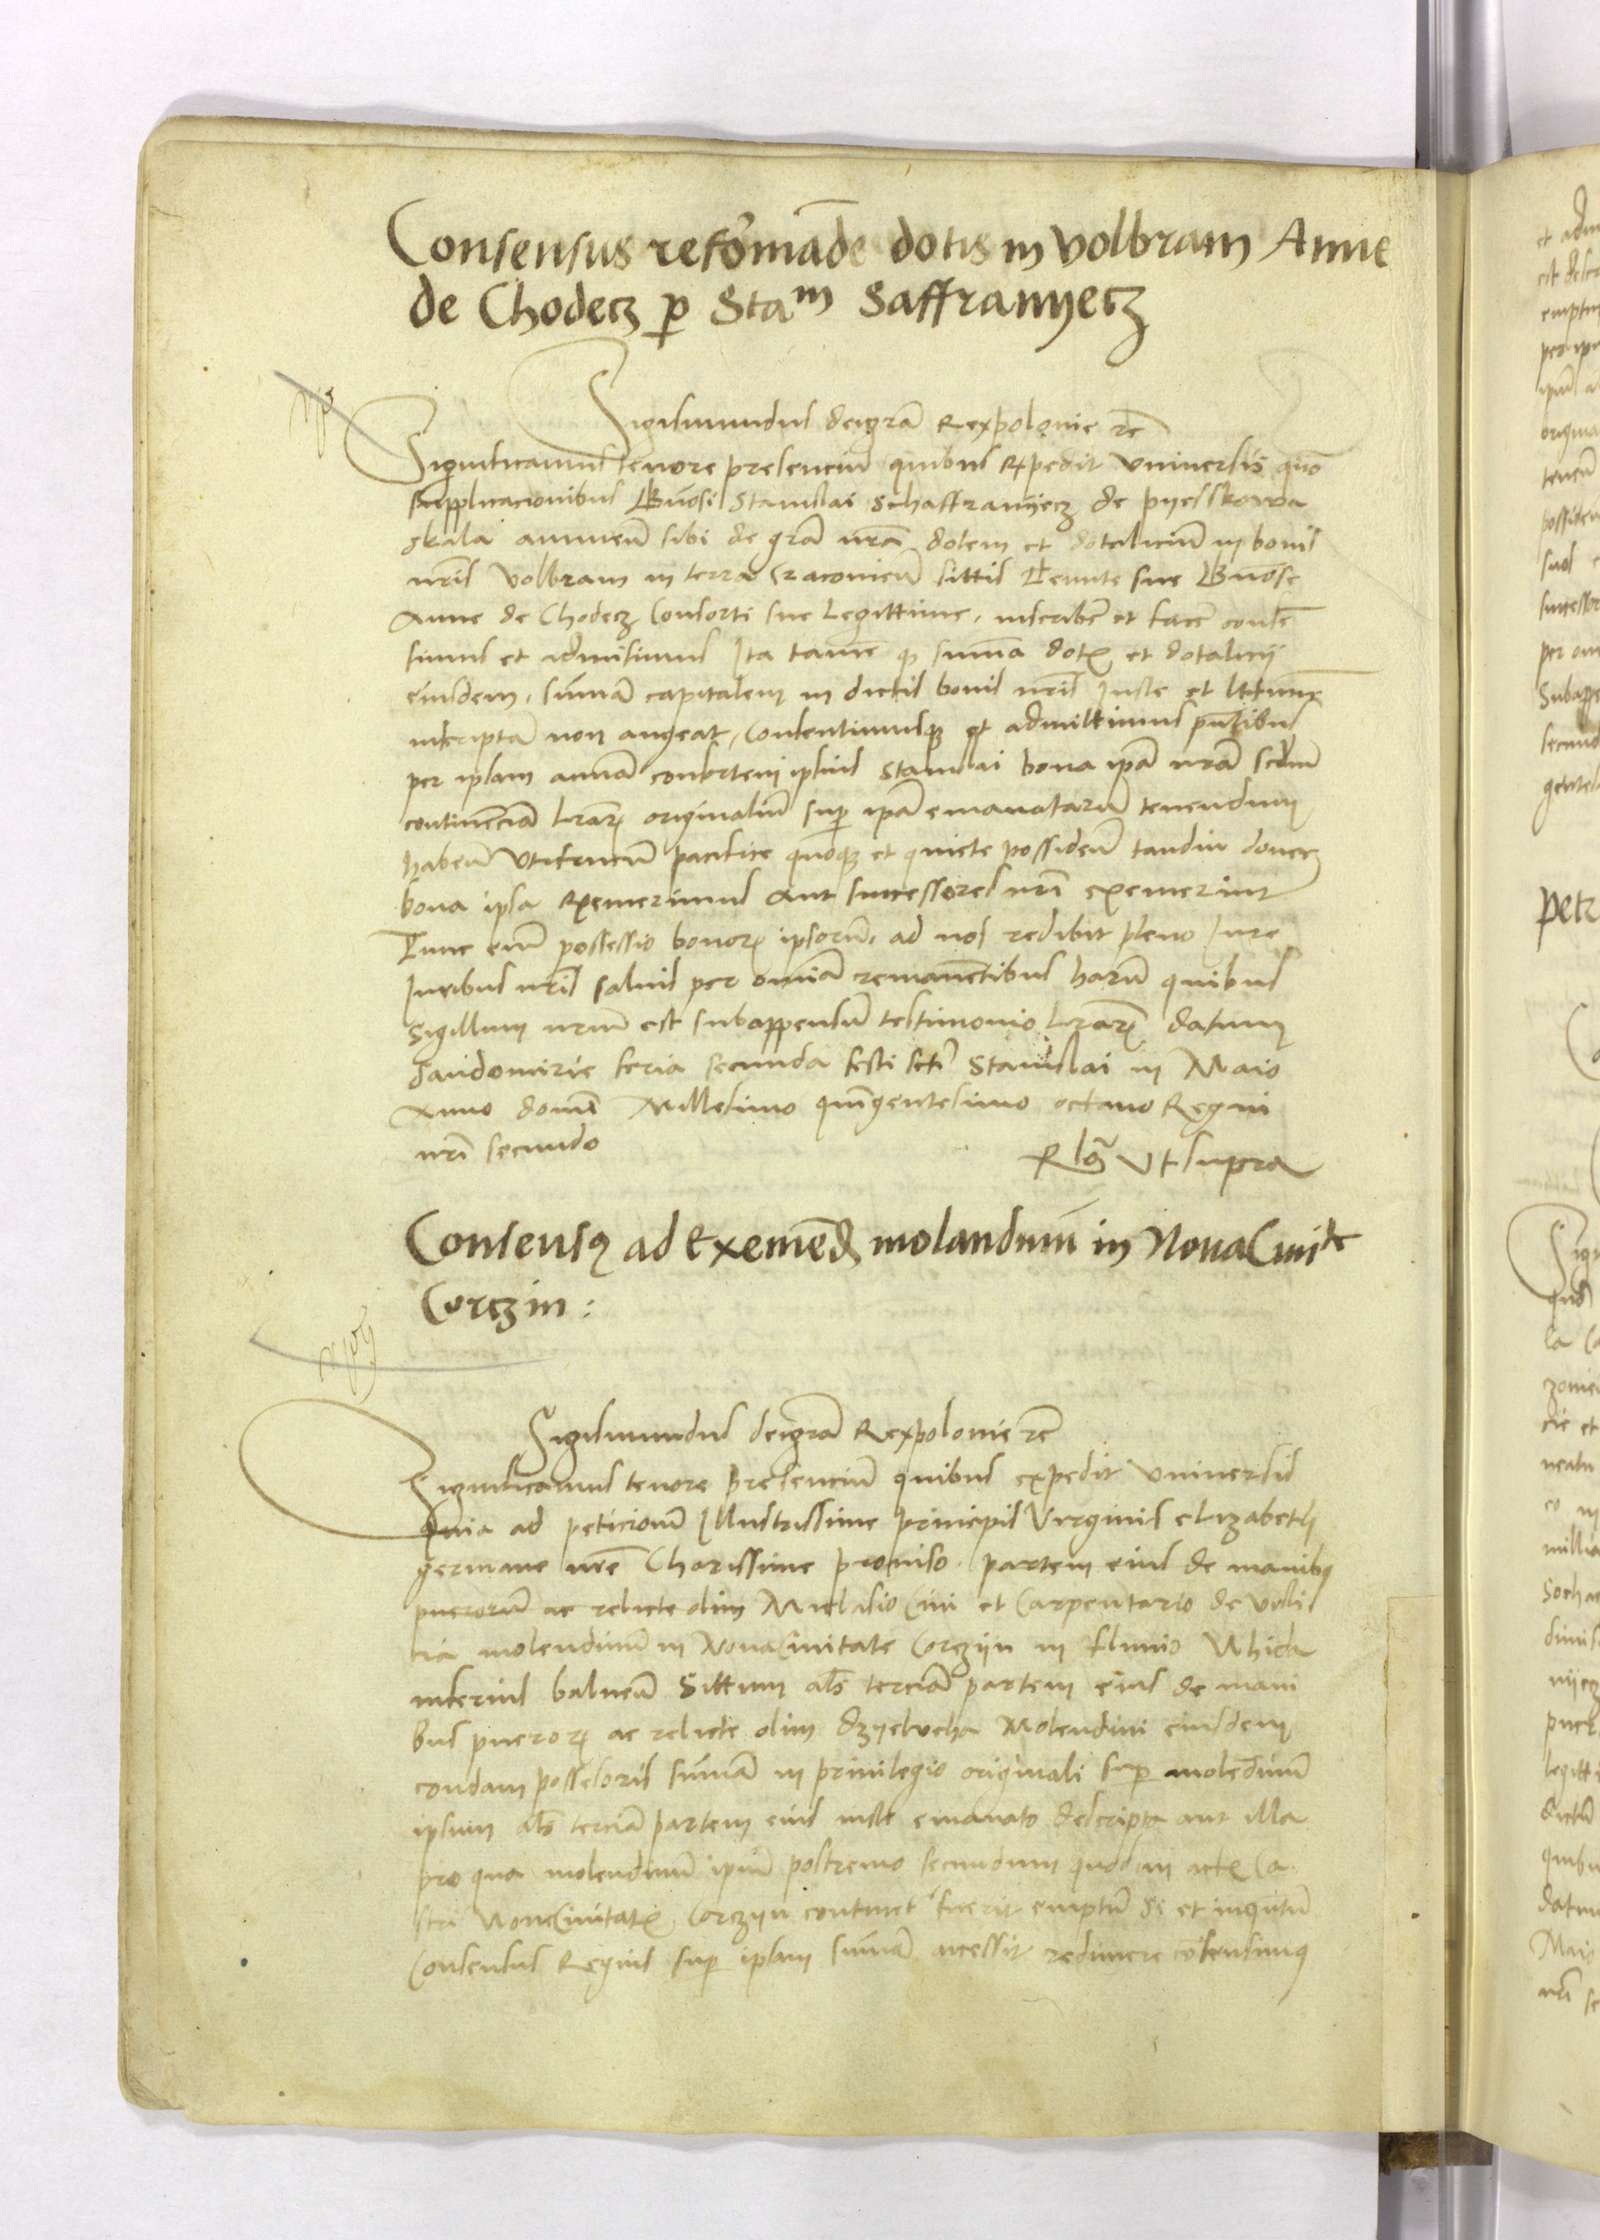 Consensus reformāde dotis in Volbram Anne
de Chodecz p Sta^m Saffranyecz
Sigismundus dei grā Rex polonie rē
Significamus tenore presenciū quibus expedit Vniuersis quō
supplicacionibus Gn̄osi Stanislai Schaffranyecz de pyesskowa
skala annuen̄ sibi de grā nrā dotem et dotalicium in bonis
nrīs Volbram in terra Cracouien̄ sittis sue Gn̄ose
Anne de Chodecz Consorti sue Legittime, inscriberē et facē consē
simus et admisimus Ita tamē q̵ summa dotꝭ et dotalicij
eiusdem, summā capitalem in dictis bonis nrīs Iuste et
inscriptā non augeat, Consentimusq̵ et admittimus pn̄tibus
per ipsam annā consortem ipsius Stanislai bona ipā nrā scdm̄
continenciā lrārꝝ originaliū sup ipā emanatarū tenendum
habeñ Vtifrueñ pacifice quoq̵ et quiete possideñ tandiu donec
bona ipsa exemerimus Aut successores nrī exemerint
Tunc eniꝫ possessio bonorꝝ ipsorū, ad nos redibit pleno Iure
Iuribus nrīs saluis per omīa remanētibus harū quibus
Sigillum nrūm est subappensū testimonio lrārꝝ datum
Sandomirie feria secunda festi sctī Stanislai in Maio
Anno domī Millesimo quīgentesimo octauo Regni
nrī secundo
Rlō Vt supra
Consensꝰ ad Exemēdꝫ molandinū in Noua Ciui^te
Corczin :
Sigismundus dei grā Rex polonie rē
Significamus tenore presenciū quibus expedit Vniuersis
Quia ad peticionē Illustrissime principis Virginis elizabeth
germane nrē Charissime promiso partem eius de manibꝰ
puerorū ac relicte olim Ciui et Carpentario de visli
cia molendinū in Noua Ciuitate Corczyn in fluuio Nhida
inferius balneū Sittum als terciā partem eius de mani
bus puerorꝝ ac relicte olim Molendini eiusdem
condam possesoris summā in priuilegio originali sup molēdinū
ipsum als terciā partem eius iuste emanato descripta aut illa
pro qua molendinū ipm̄ postremo secundum quod in actꝭ Ca
stri Noue Ciuitatꝭ Corczyn continet fuerit emptū Si et inqntū
Consensus Regius sup ipsam summā accessit redimere cōsensimꝰ